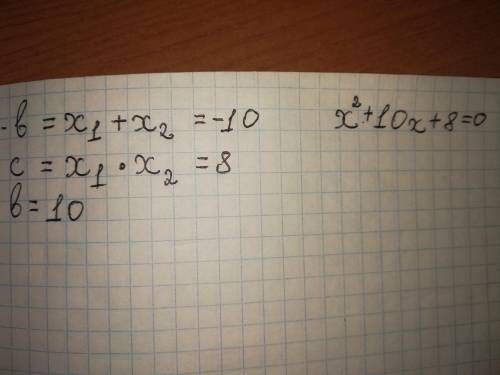 -в = x₁ + x₂ = -10
x² + 10x + 8 = 0
c = x₁ · x₂ = 8
в = 10